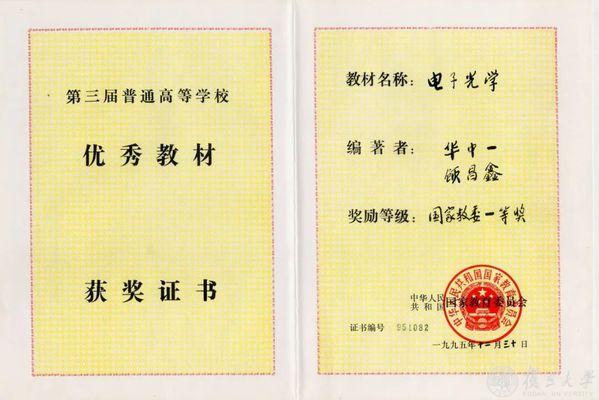 第三届普通高等学校
优秀教材
获奖证书
教材名称：电子光学
编著者：华中一
顾昌鑫
奖励等级：国家教委一等奖
中华人民
共和国
国家教育委员会
中华人民共和国国家教育委员会
证书编号 951082
一九九五年十二月三十日
復旦大學
FUDAN UNIVERSITY